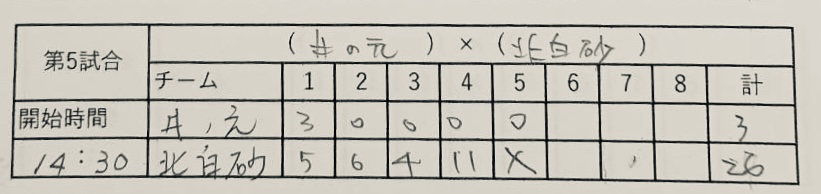 第5試合 (井の元) × (北白砂)
チーム 1 2 3 4 5 6 7 8 計
開始時間 井ノ元 3 0 0 0 0 3
14:30 北白砂 5 6 4 11 X 26